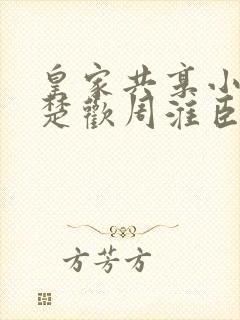 皇家共享小
楚歡周淮臣
方芳方